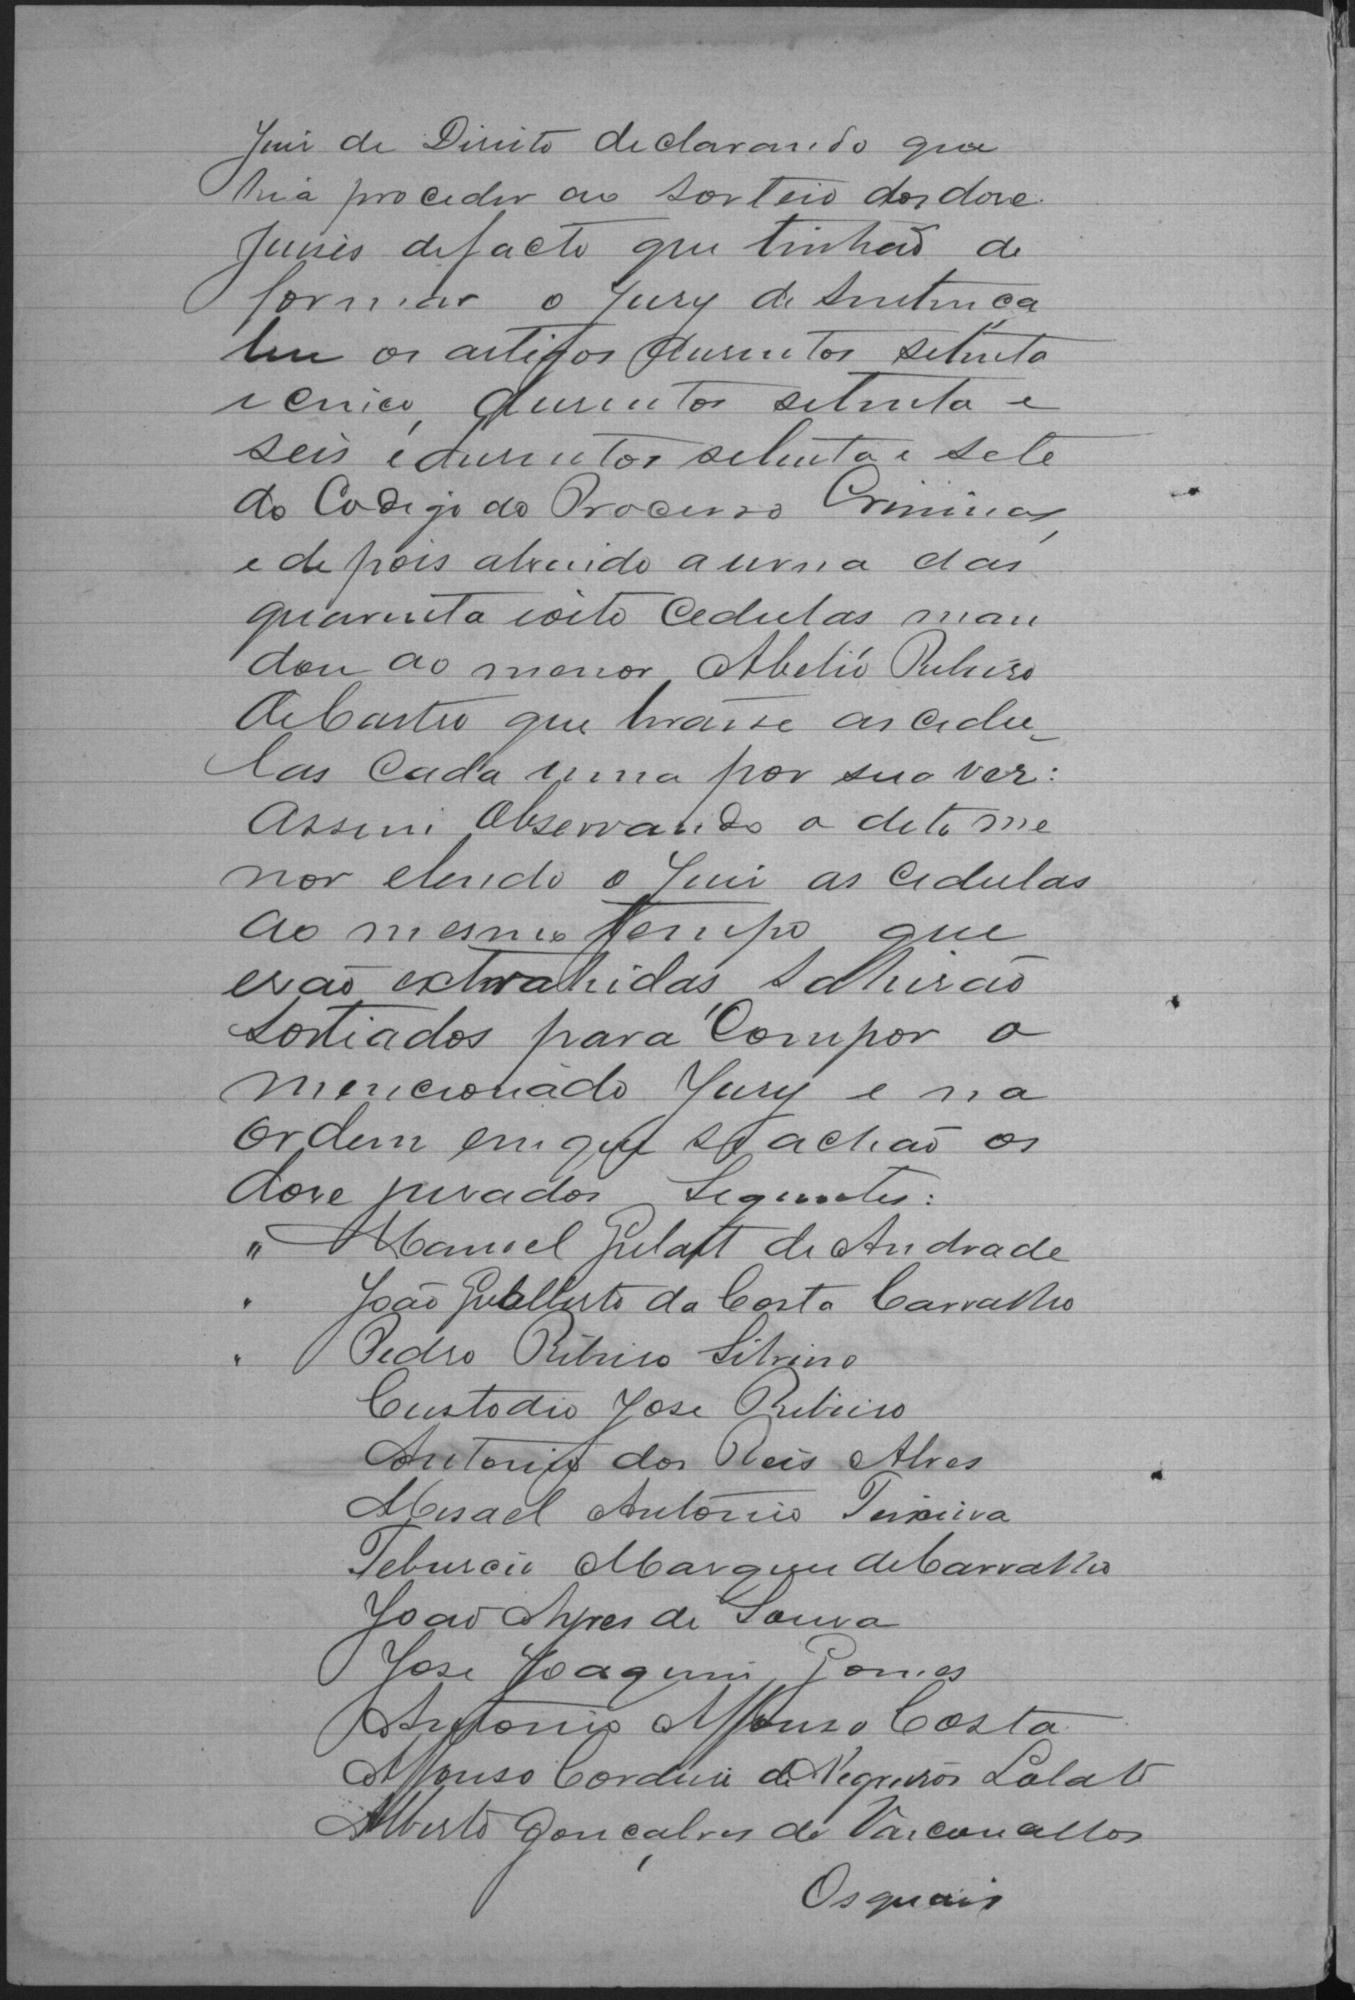 Juiz de Direito declarando que
hia proceder ao sorteio dos doze
Juizes de facto que tinhaõ de
formar o Jury de Sentença
leu os artigos duzentos setenta
e cinco, duzentos setenta e
seis e duzentos setenta e sete
do Codigo do Processo Criminal,
e depois abrindo a urna das
quarenta e oito cedulas man
dou ao menor Abelio Ribeiro
de Castro que tirasse as cedu_
las cada uma por sua vez:
Assim observando o dito me
nor e lendo o Juiz as cedulas
ao mesmo tempo que
eraõ extrahidas, sahiraõ
sortiados para compor o
mencionado Jury e na
ordem em que se achaõ os
doze jurados seguintes:
" Manoel de Andrade
João Gualberto da Costa Carvalho
Pedro Ribeiro Silvino
Custodio Jose Ribeiro
Antonio dos Reis Alves
Misael Antonio Teixeira
Teburcio Marques de Carvalho
Joaõ Ayres de Souza
Jose Joaquim Gomes
Antonio Affonso Costa
Affonso Cordeiro de Negreiros Lobato
Alberto Gonçalves de Vasconcellos
Os quais